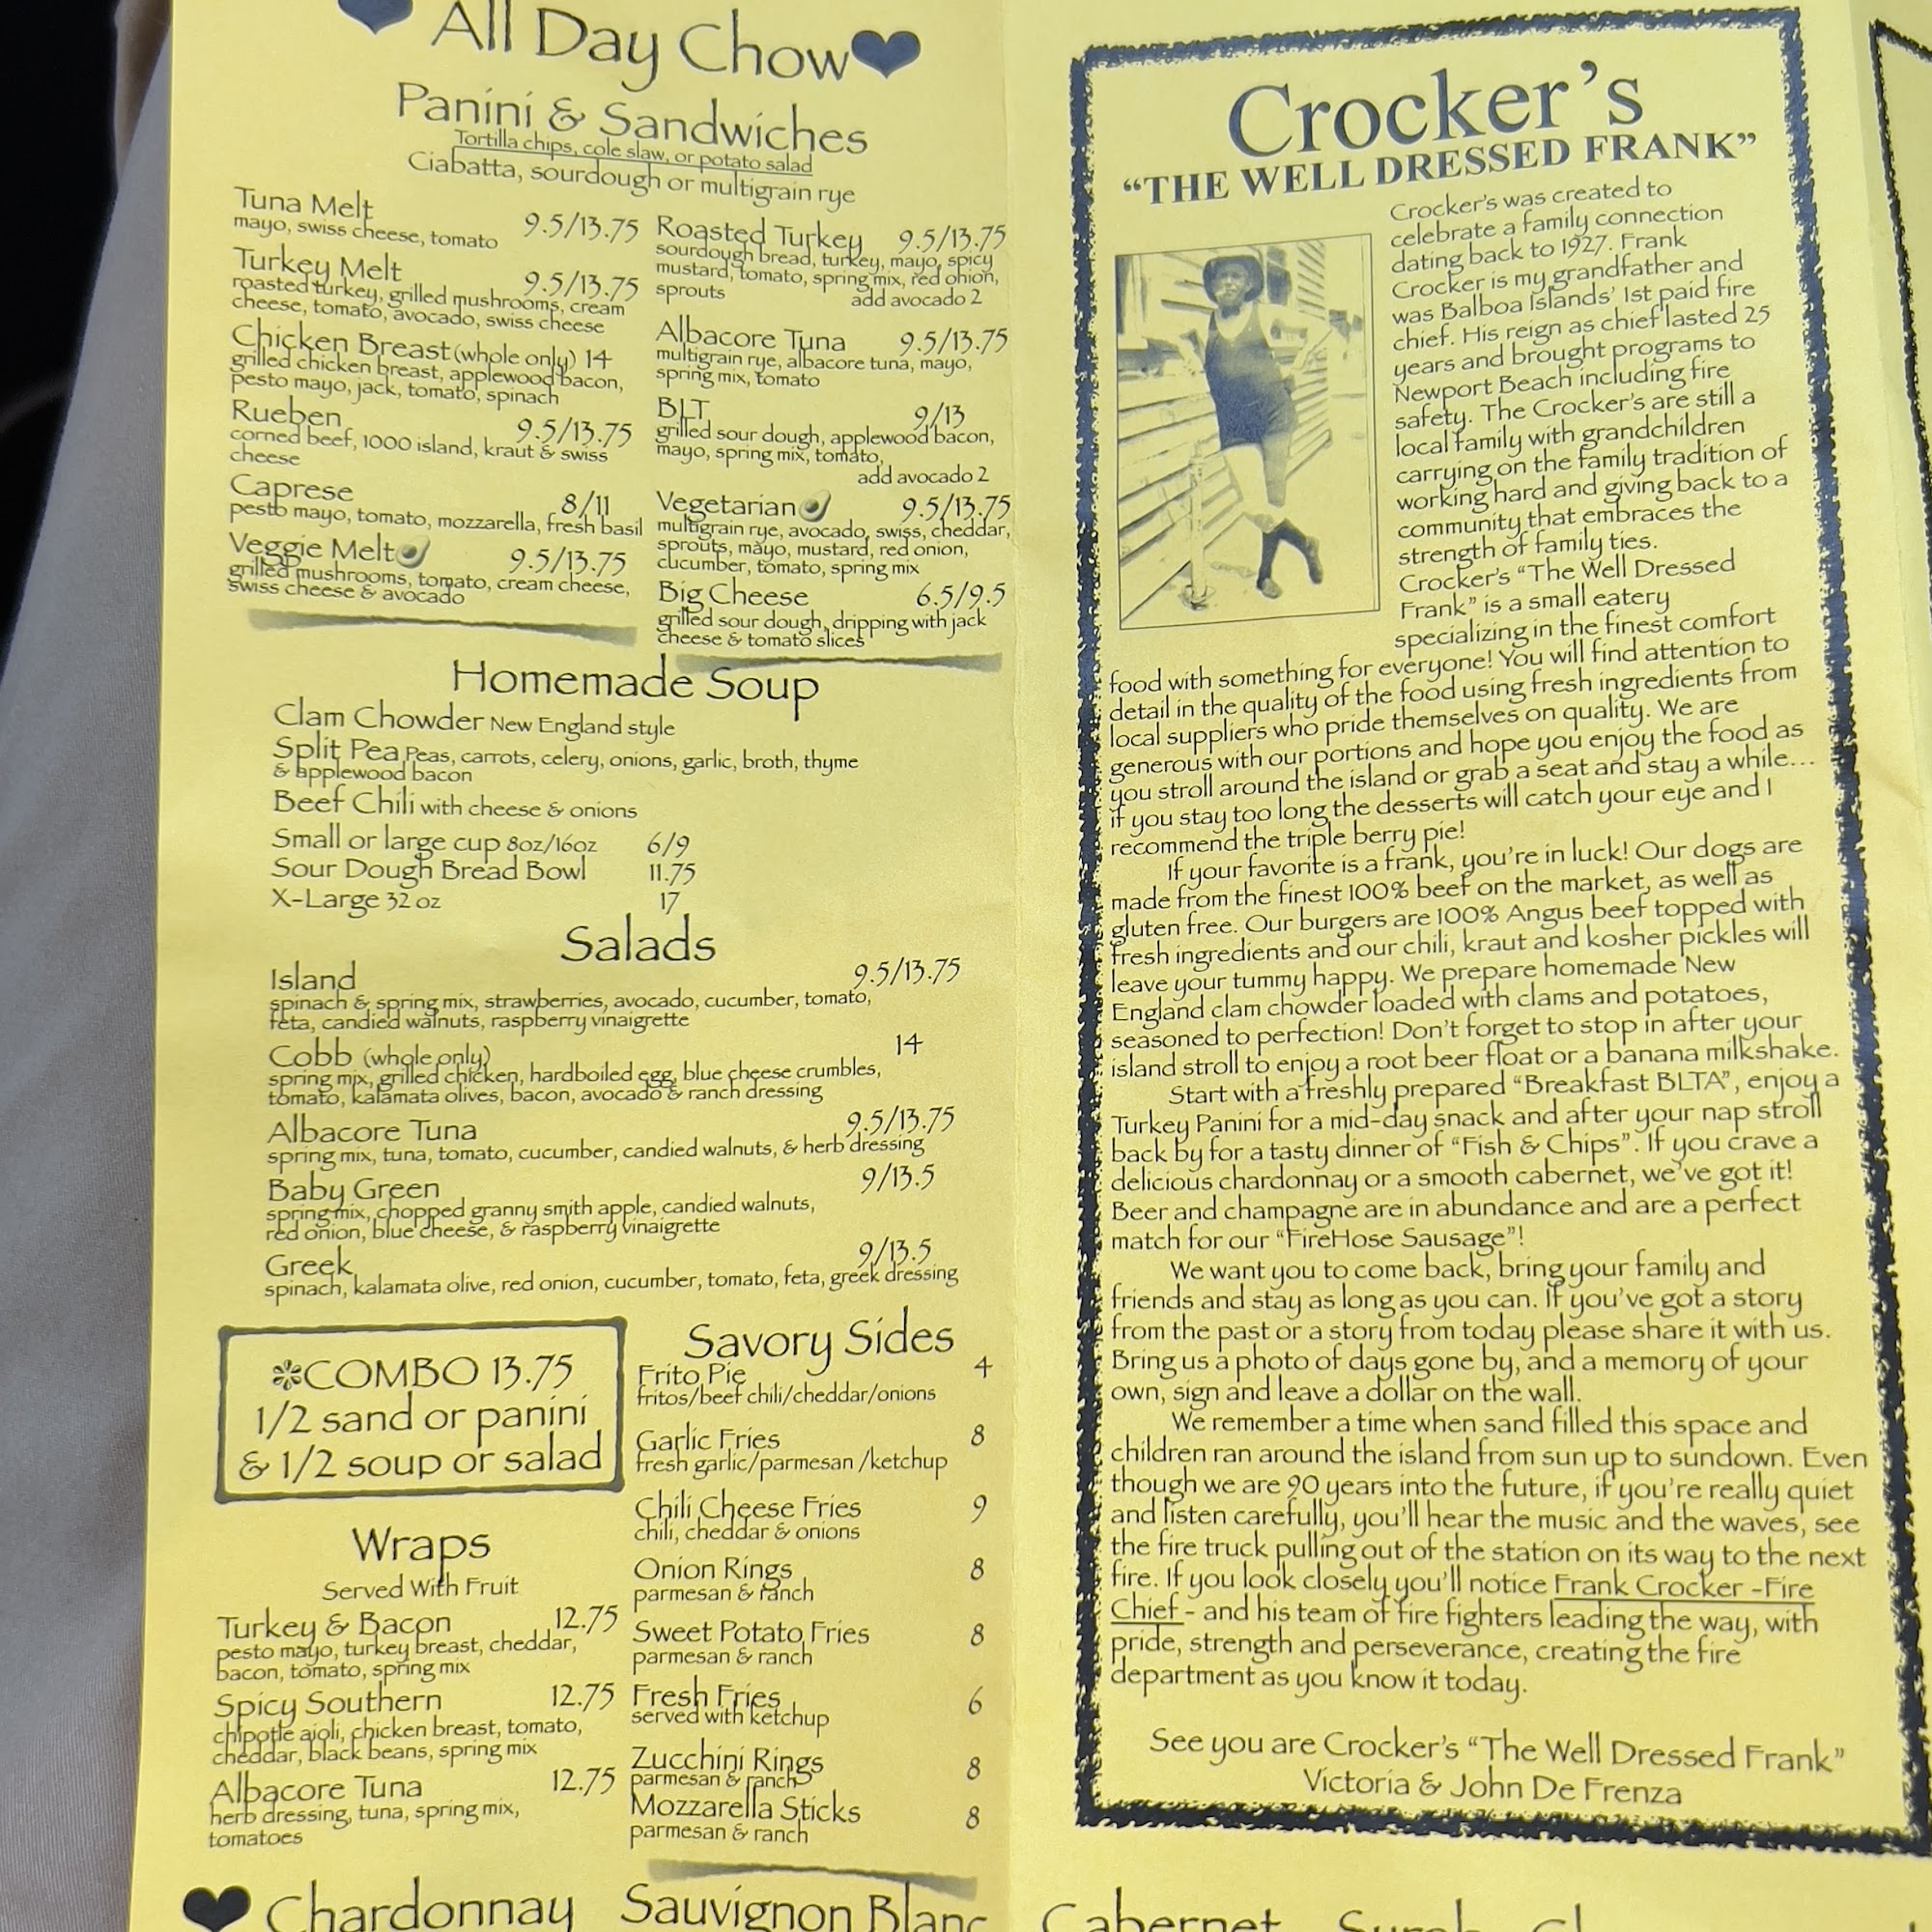 All Day Chow
Panini & Sandwiches
Tortilla chips, cole slaw, or potato salad
Ciabatta, sourdough or multigrain rye
Tuna Melt 9.5/13.75
mayo, swiss cheese, tomato
Turkey Melt 9.5/13.75
roasted turkey, grilled mushrooms, cream
cheese, tomato, avocado, swiss cheese
Chicken Breast (whole only) 14
grilled chicken breast, applewood bacon,
pesto mayo, jack, tomato, spinach
Rueben 9.5/13.75
corned beef, 1000 island, kraut & swiss
cheese
Caprese 8/11
pesto mayo, tomato, mozzarella, fresh basil
Veggie Melt 9.5/13.75
grilled mushrooms, tomato, cream cheese,
swiss cheese & avocado
Roasted Turkey 9.5/13.75
sourdough bread, turkey, mayo, spicy
mustard, tomato, spring mix, red onion,
sprouts add avocado 2
Albacore Tuna 9.5/13.75
multigrain rye, albacore tuna, mayo,
spring mix, tomato
BLT 9/13
grilled sour dough, applewood bacon,
mayo, spring mix, tomato,
add avocado 2
Vegetarian 9.5/13.75
multigrain rye, avocado, swiss, cheddar,
sprouts, mayo, mustard, red onion,
cucumber, tomato, spring mix
Big Cheese 6.5/9.5
grilled sour dough, dripping with jack
cheese & tomato slices
Homemade Soup
Clam Chowder New England style
Split Pea Peas, carrots, celery, onions, garlic, broth, thyme
& applewood bacon
Beef Chili with cheese & onions
Small or large cup 8oz/16oz 6/9
Sour Dough Bread Bowl 11.75
X-Large 32 oz 17
Salads
Island 9.5/13.75
spinach & spring mix, strawberries, avocado, cucumber, tomato,
feta, candied walnuts, raspberry vinaigrette
Cobb (whole only) 14
spring mix, grilled chicken, hardboiled egg, blue cheese crumbles,
tomato, kalamata olives, bacon, avocado & ranch dressing
Albacore Tuna 9.5/13.75
spring mix, tuna, tomato, cucumber, candied walnuts, & herb dressing
Baby Green 9/13.5
spring mix, chopped granny smith apple, candied walnuts,
red onion, blue cheese, & raspberry vinaigrette
Greek 9/13.5
spinach, kalamata olive, red onion, cucumber, tomato, feta, greek dressing
COMBO 13.75
1/2 sand or panini
& 1/2 soup or salad
Wraps
Served With Fruit
Turkey & Bacon 12.75
pesto mayo, turkey breast, cheddar,
bacon, tomato, spring mix
Spicy Southern 12.75
chipotle aioli, chicken breast, tomato,
cheddar, black beans, spring mix
Albacore Tuna 12.75
herb dressing, tuna, spring mix,
tomatoes
Savory Sides
Frito Pie 4
fritos/beef chili/cheddar/onions
Garlic Fries 8
fresh garlic/parmesan /ketchup
Chili Cheese Fries 9
chili, cheddar & onions
Onion Rings 8
parmesan & ranch
Sweet Potato Fries 8
parmesan & ranch
Fresh Fries 6
served with ketchup
Zucchini Rings 8
parmesan & ranch
Mozzarella Sticks 8
parmesan & ranch
Chardonnay Sauvignon Blanc
Crocker's
"THE WELL DRESSED FRANK"
Crocker's was created to
celebrate a family connection
dating back to 1927. Frank
Crocker is my grandfather and
was Balboa Islands' 1st paid fire
chief. His reign as chief lasted 25
years and brought programs to
Newport Beach including fire
safety. The Crocker's are still a
local family with grandchildren
carrying on the family tradition of
working hard and giving back to a
community that embraces the
strength of family ties.
Crocker's "The Well Dressed
Frank" is a small eatery
specializing in the finest comfort
food with something for everyone! You will find attention to
detail in the quality of the food using fresh ingredients from
local suppliers who pride themselves on quality. We are
generous with our portions and hope you enjoy the food as
you stroll around the island or grab a seat and stay a while...
if you stay too long the desserts will catch your eye and I
recommend the triple berry pie!
If your favorite is a frank, you're in luck! Our dogs are
made from the finest 100% beef on the market, as well as
gluten free. Our burgers are 100% Angus beef topped with
fresh ingredients and our chili, kraut and kosher pickles will
leave your tummy happy. We prepare homemade New
England clam chowder loaded with clams and potatoes,
seasoned to perfection! Don't forget to stop in after your
island stroll to enjoy a root beer float or a banana milkshake.
Start with a freshly prepared "Breakfast BLTA", enjoy a
Turkey Panini for a mid-day snack and after your nap stroll
back by for a tasty dinner of "Fish & Chips". If you crave a
delicious chardonnay or a smooth cabernet, we've got it!
Beer and champagne are in abundance and are a perfect
match for our "FireHose Sausage"!
We want you to come back, bring your family and
friends and stay as long as you can. If you've got a story
from the past or a story from today please share it with us.
Bring us a photo of days gone by, and a memory of your
own, sign and leave a dollar on the wall.
We remember a time when sand filled this space and
children ran around the island from sun up to sundown. Even
though we are 90 years into the future, if you're really quiet
and listen carefully, you'll hear the music and the waves, see
the fire truck pulling out of the station on its way to the next
fire. If you look closely you'll notice Frank Crocker -Fire
Chief - and his team of fire fighters leading the way, with
pride, strength and perseverance, creating the fire
department as you know it today.
See you are Crocker's "The Well Dressed Frank"
Victoria & John De Frenza
Cabernet